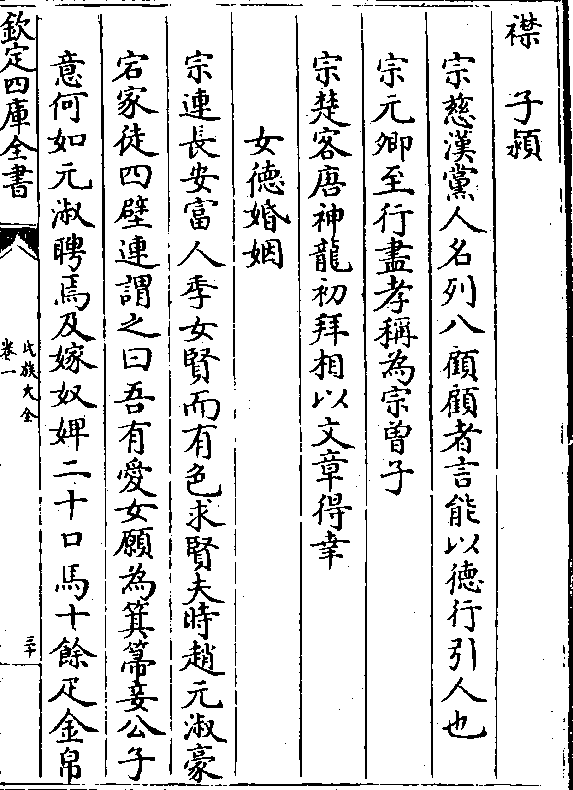 襟　子潁
宗慈漢黨人名列八顧顧者言能以徳行引人也
宗元卿至行盡孝稱為宗曽子
宗楚客唐神龍初拜相以文章得幸
女徳婚姻
宗連長安富人季女賢而有色求賢夫時趙元淑豪
宕家徒四壁連謂之曰吾有愛女願為箕箒妾公子
意何如元淑聘焉及嫁奴婢二十口馬十餘疋金帛
欽定四庫全書
氏族大全
卷一
三十